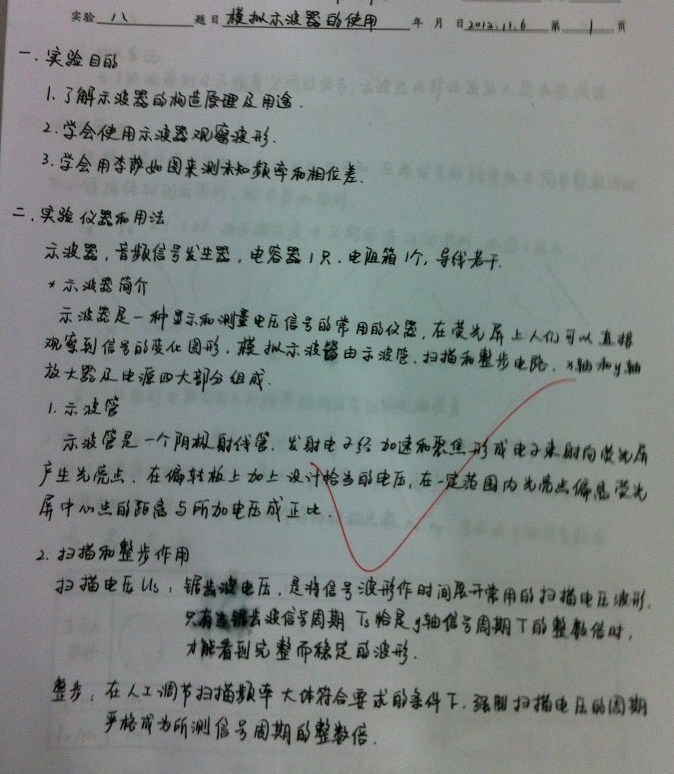 实验 八 题目 模拟示波器的使用 年 月 日 2012.11.6 第 1 页
一.实验目的
1.了解示波器的构造原理及用途.
2.学会使用示波器观察波形.
3.学会用李萨如图来测未知频率和相位差.
二.实验仪器和用法
示波器,音频信号发生器,电容器1只.电阻箱1个,导线若干.
*示波器简介
示波器是一种显示和测量电压信号的常用的仪器,在荧光屏上人们可以直接
观察到信号的变化图形.模拟示波器由示波管、扫描和整步电路、x轴和y轴
放大器及电源四大部分组成.
1.示波管
示波管是一个阴极射线管.发射电子经加速和聚焦形成电子束射向荧光屏
产生光亮点.在偏转板上加上设计恰当的电压,在一定范围内光亮点偏离荧光
屏中心点的距离与所加电压成正比.
2.扫描和整步作用
扫描电压Us:锯齿波电压,是将信号波形作时间展开常用的扫描电压波形.
只有当锯齿波信号周期Ts恰是y轴信号周期T的整数倍时,
才能看到完整而稳定的波形.
整步:在人工调节扫描频率大体符合要求的条件下,强制扫描电压的周期
严格成为所测信号周期的整数倍.